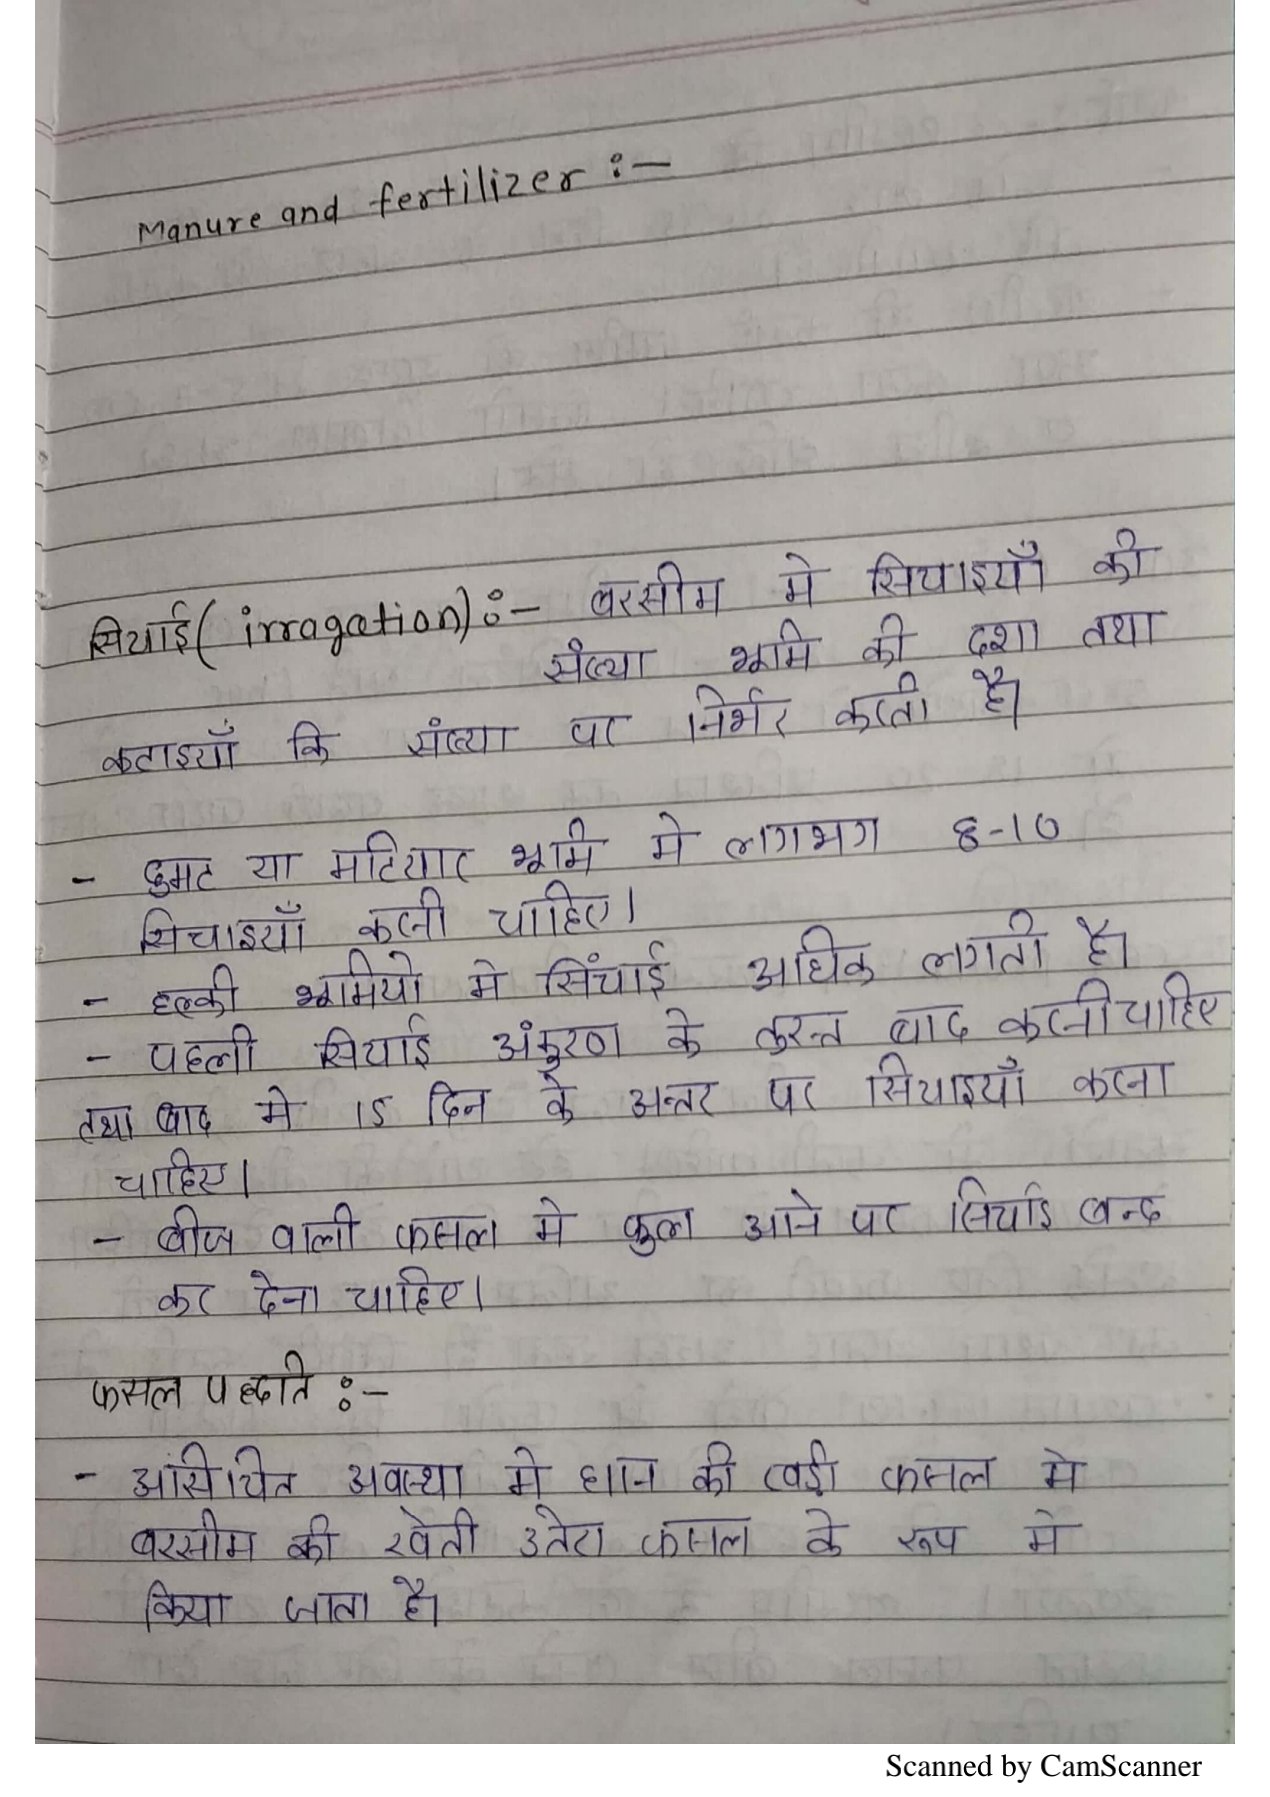 Manure and fertilizer :-
सिचाई ( irragation) :- बरसीम मे सिचाइयाँ की
संख्या भूमि की दशा तथा
कटाइयाँ कि संख्या पर निर्भर करती है।
- दुमट या मटियार भूमि मे लगभग 8-10
सिचाइयाँ करनी चाहिए।
- हल्की भूमियो मे सिंचाई अधिक लगती है।
- पहली सिचाई अंकुरण के तुरन्त बाद करनी चाहिए
तथा बाद मे 15 दिन के अन्तर पर सिचाइयाँ करना
चाहिए।
- बीज वाली फसल मे फुल आने पर सिचाई बन्द
कर देना चाहिए।
फसल पद्धति :-
- असिंचित अवस्था मे धान की खड़ी फसल मे
बरसीम की खेती उतेरा फसल के रूप मे
किया जाता है।
Scanned by CamScanner